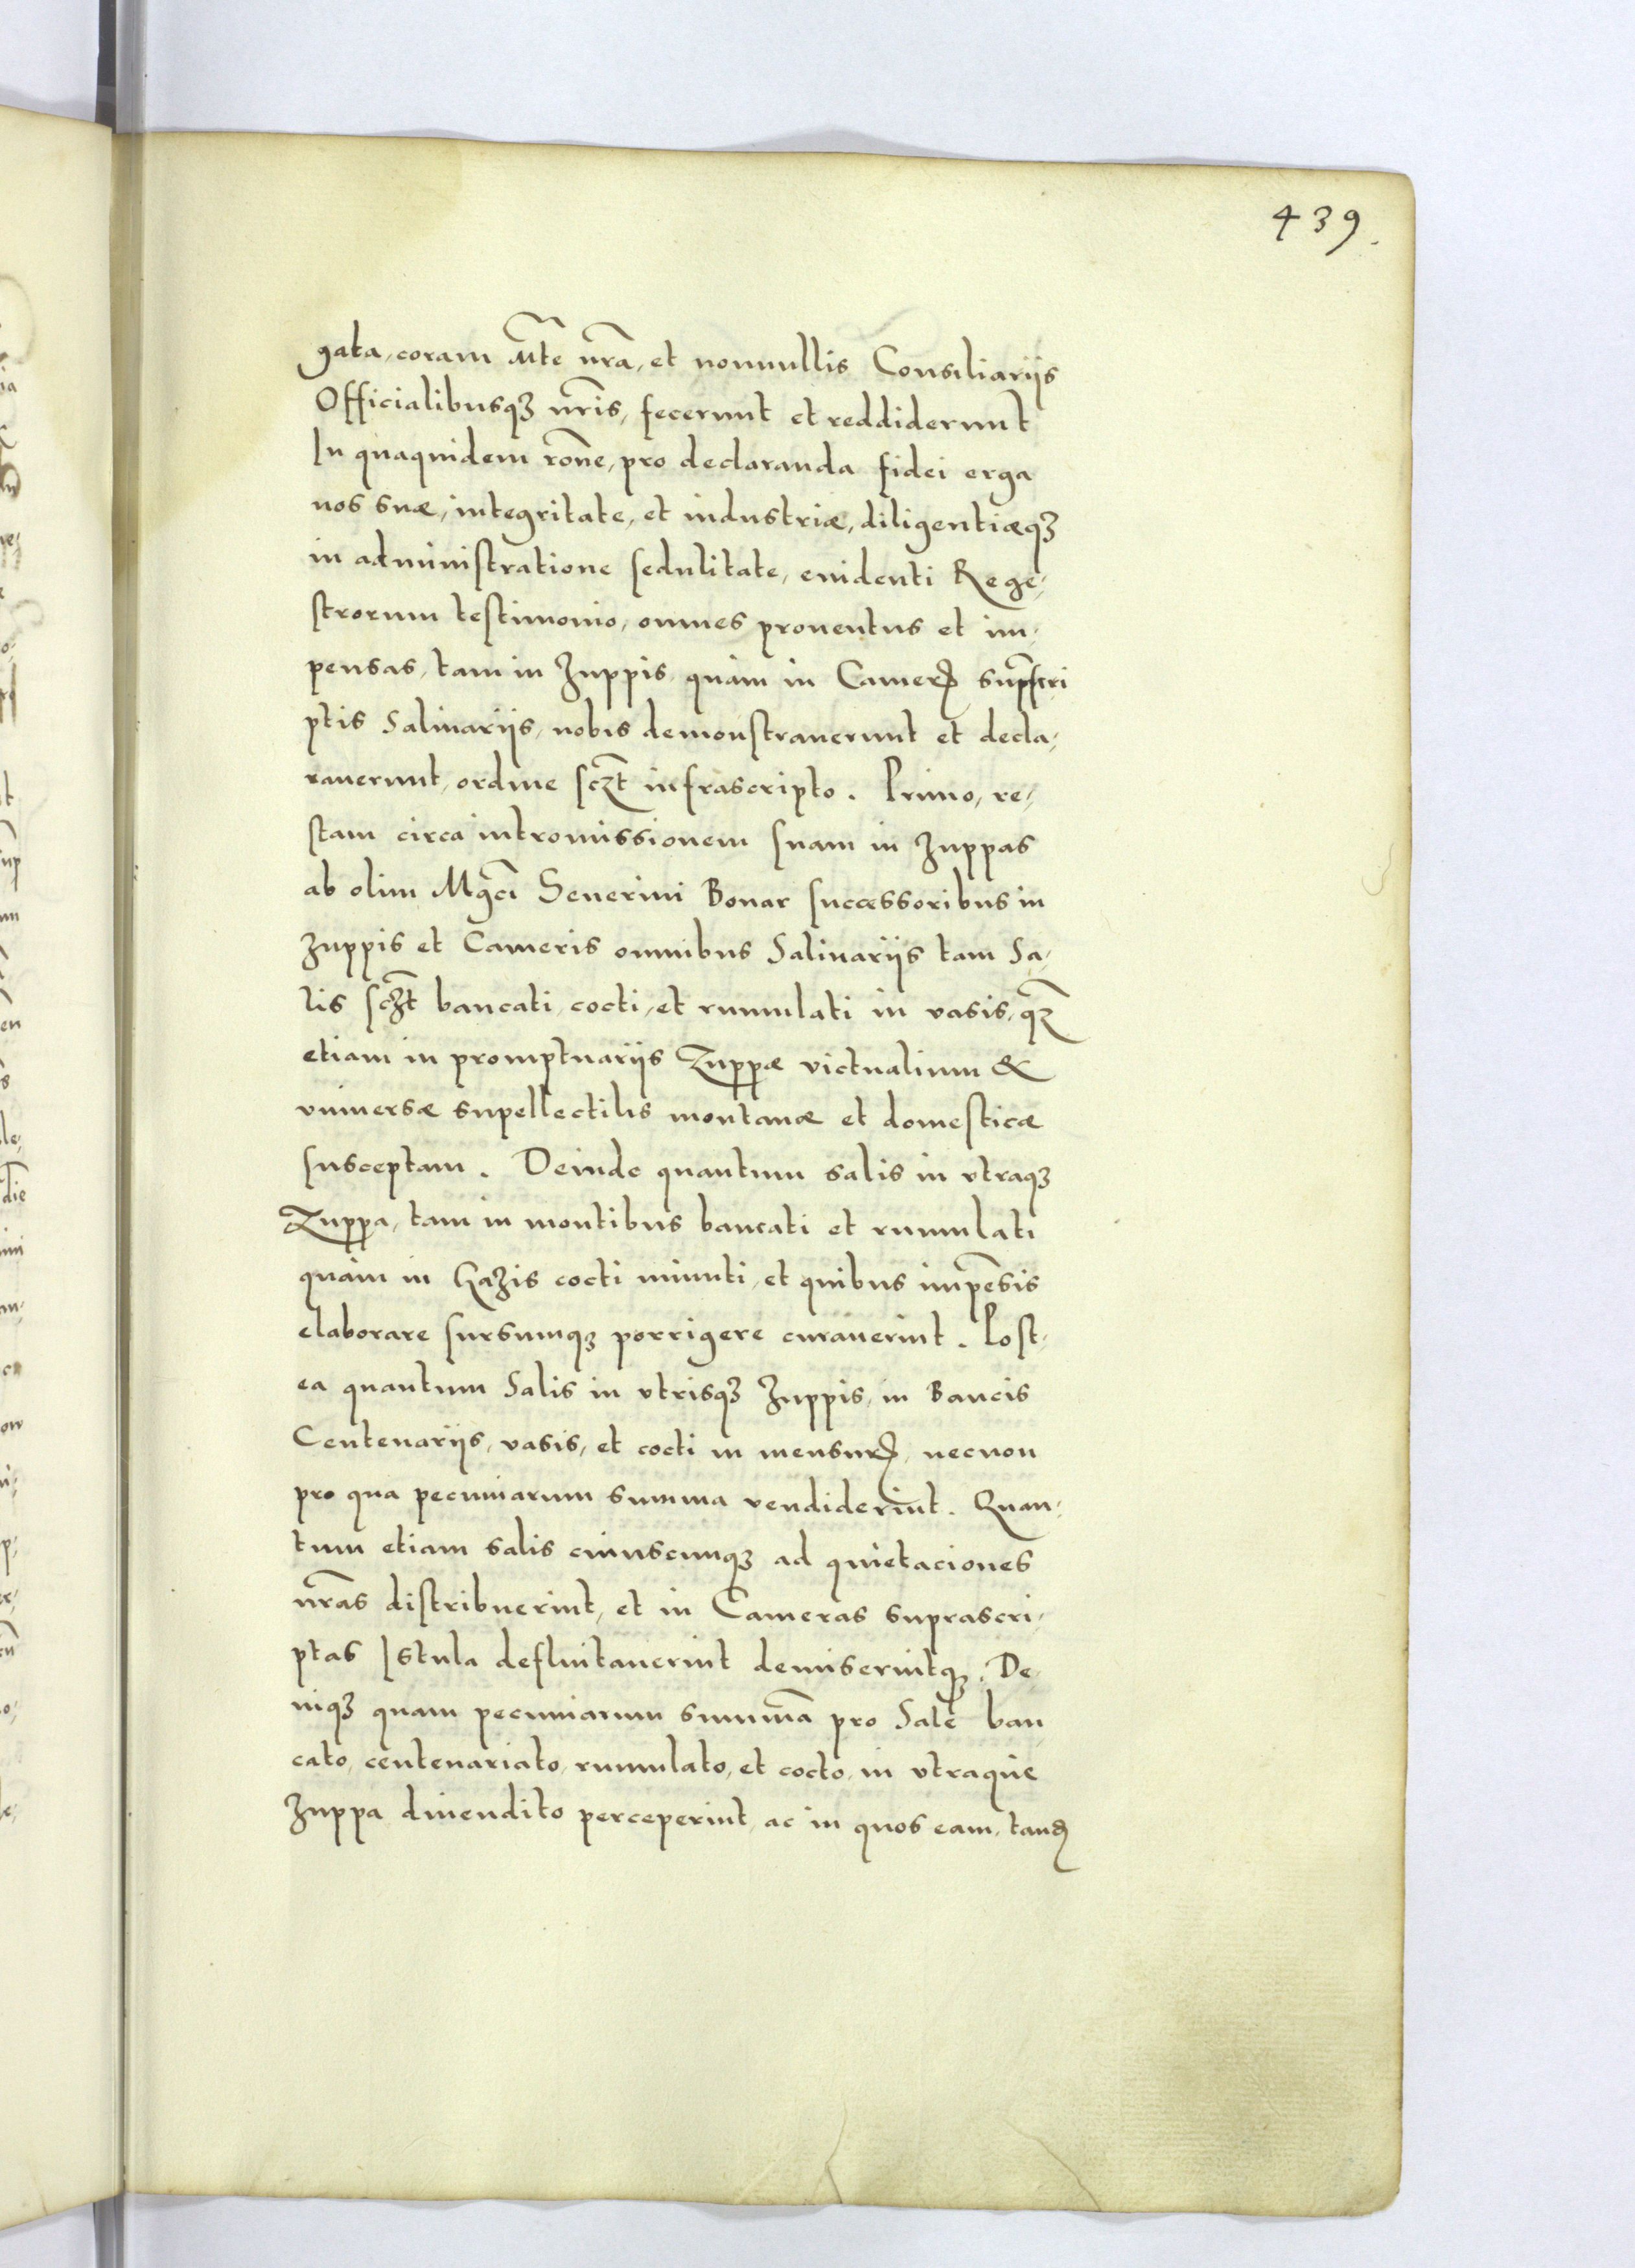 439.
gata, coram Mte nra, et nonnullis Consiliariis
Officialibusqꝫ nris, fecerunt et reddiderunt
In quaquidem rone, pro declaranda fidei erga
nos suæ, integritate, et industriæ, diligentiæqꝫ
in administratione sedulitate, euidenti Rege,
strorum testimonio, omnes prouentus et im,
pensas, tam in Zuppis, quàm in Camerꝭ supscri
ptis Salinariis, nobis demonstrauerunt et decla,
rauerunt, ordine sczt infrascripto. Primo, re,
stam circa intromissionem suam in Zuppas
ab olim Mgci Seuerini Bonar successoribus in
Zuppis et Cameris omnibus Salinariis tam Sa,
lis sczt bancati, cocti, et rumulati in vasis, qꝫ
etiam in promptuariis Zuppæ victualium &
vniuersæ supellectilis montanæ et domesticæ
susceptam. Deinde quantum salis in vtraqꝫ
Zuppa, tam in montibus bancati et rumulati
quàm in Hazis cocti minuti, et quibus impesis
elaborare sursumqꝫ porrigere curauerint. Post,
ea quantum Salis in vtrisqꝫ Zuppis, in Bancis
Centenariis, vasis, et cocti in mensurꝭ, necnon
pro qua pecuniarum summa vendiderint. Quan,
tum etiam salis cuiuscunqꝫ ad quietaciones
nras distribuerint, et in Cameras suprascri,
ptas Istula defluitauerint demiserintqꝫ. De,
niqꝫ quam pecuniarum summā pro Sale ban
cato, centenariato, rumulato, et cocto, in vtraque
Zuppa diuendito perceperint, ac in quos eam, tandꝫ